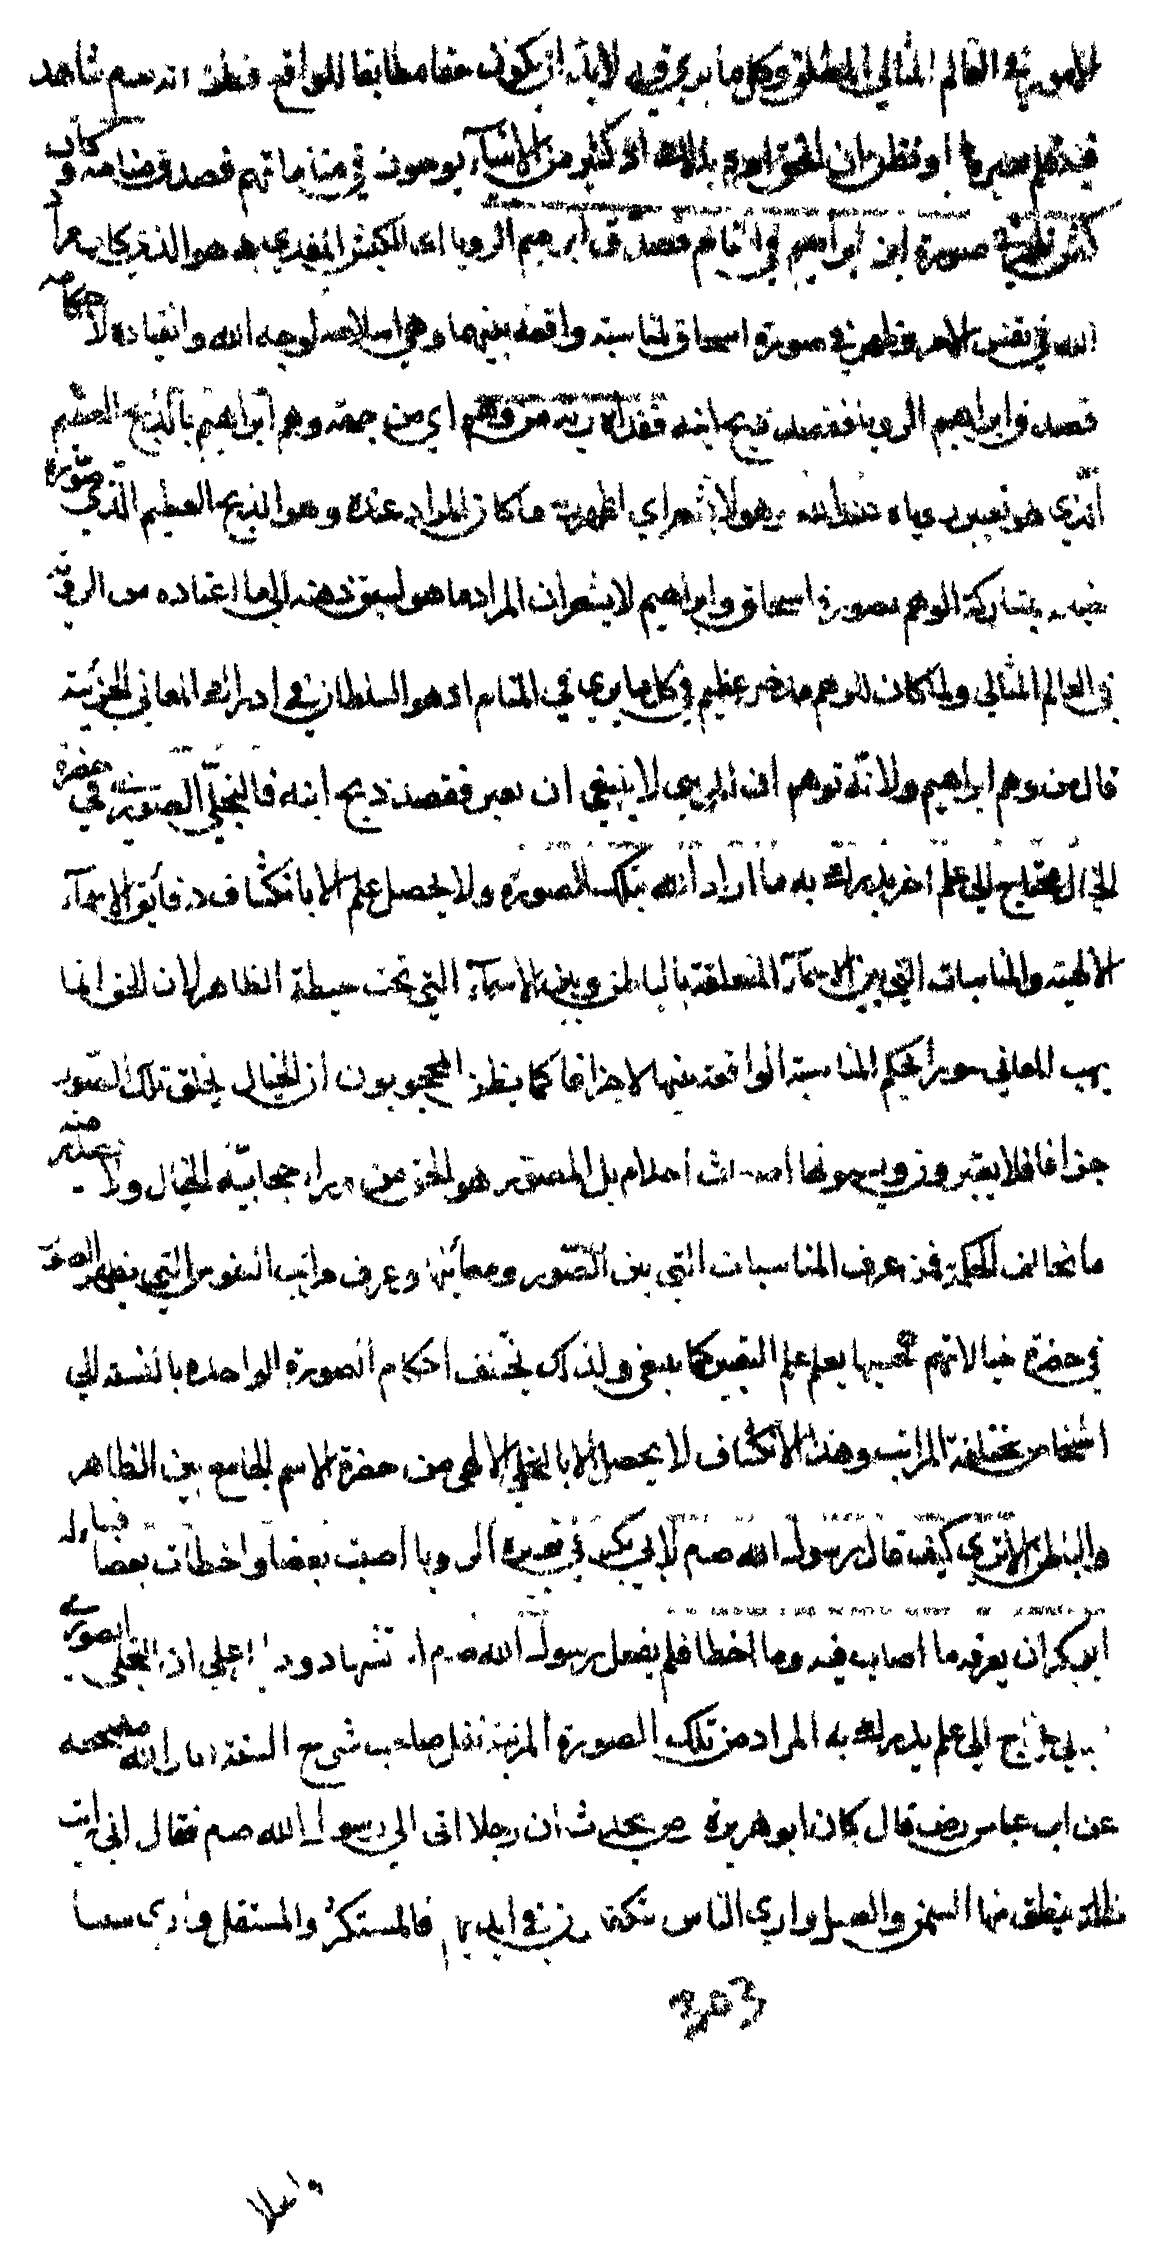 الامور في العالم المثالي المطلق وكل ما يرى فيه لابد ان يكون حقا مطابقا للواقع فظن انه صم شاهد
فيه فلم يعبرها او فظن ان الحق امره بذلك اذ كثير من الاشياء يؤمرون في مناماتهم فصدق منامه وكان
كبش ظهر في صورة ابن ابراهيم في المنام فصدق ابراهيم الرؤيا اى الكبش المفدي به هو الذي كان مراد
الله في نفس الامر فظهر في صورة اسحاق لمناسبة واقعة بينهما وهي اسلامه لوجه الله وانقياده لاحكامه
فصدق ابراهيم الرويا فقصد ذبح ابنه ففداه ربه من وهم اي من جهة وهم ابراهيم بالذبح العظيم
الذي هو تعبير رؤياه عند الله وهو لا يشعر اي اظهر ربه ما كان المراد عنده وهو الذبح العظيم الذي صوره
خياله بمشاركة الوهم بصورة اسحاق وابراهيم لا يشعر ان المراد ما هو لسبق ذهنه الى ما اعتاده من الرؤية
في العالم المثالي ولما كان للوهم مدخر عظيم في كل ما يرى في المنام اذ هو السلطان في ادراك المعاني الجزئية
قال من وهم ابراهيم ولانه توهم ان المرئي لا ينبغي ان يعبر فقصد ذبح ابنه فالتجلي الصوري في حضرة
الخيال محتاج الى علم اخر يدرك به ما اراد الله بتلك الصورة ولا يحصل علم الا بانكشاف دقائق الاسماء
الالهية والمناسبات التي بين الاسماء المتعلقة بالباطن وبين الاسماء التي تحت حيطة الظاهر لان الحق انما
يهب المعاني صورا بحكم المناسبة الواقعة بينهما لا جزافا كما يظن المحجوبون ان الخيال يخلق تلك الصور
جزافا فلا يعتبرون ويسمونها اضغاث احلام بل المصور هو الحق من وراء حجابية الخيال ولا يصدر منه
ما يخالف الحكمة فمن عرف المناسبات التي بين الصور ومعانيها وعرف مراتب النفوس التي يظهر الصور
في حضرة خيالاتهم بحسبها يعلم علم التعبير كما ينبغي ولذلك يختلف احكام الصورة الواحدة بالنسبة الى
اشخاص مختلفة المراتب وهذا الانكشاف لا يحصل الا بالتجلي الالهي من حضرة الاسم الجامع بين الظاهر
والباطن الا ترى كيف قال رسول الله صم لابي بكر في تعبيره الرويا اصبت بعضا واخطات بعضا فساله
ابو بكر ان يعرفه ما اصاب فيه وما اخطا فلم يفعل رسول الله صم استشهاد ودليل على ان التجلي الصوري
يحتاج الى علم يدرك به المراد من تلك الصورة المرئية نقل صاحب شرح السنة اسناد الله مصححه
عن ابن عباس رضي قال كان ابو هريرة رض يحدث ان رجلا اتى الى رسول الله صم فقال اني رايت
ظلة ينطف منها السمن والعسل وارى الناس يتكففون في ايديهم فالمستكثر والمستقل وارى سببا
303
واصلا